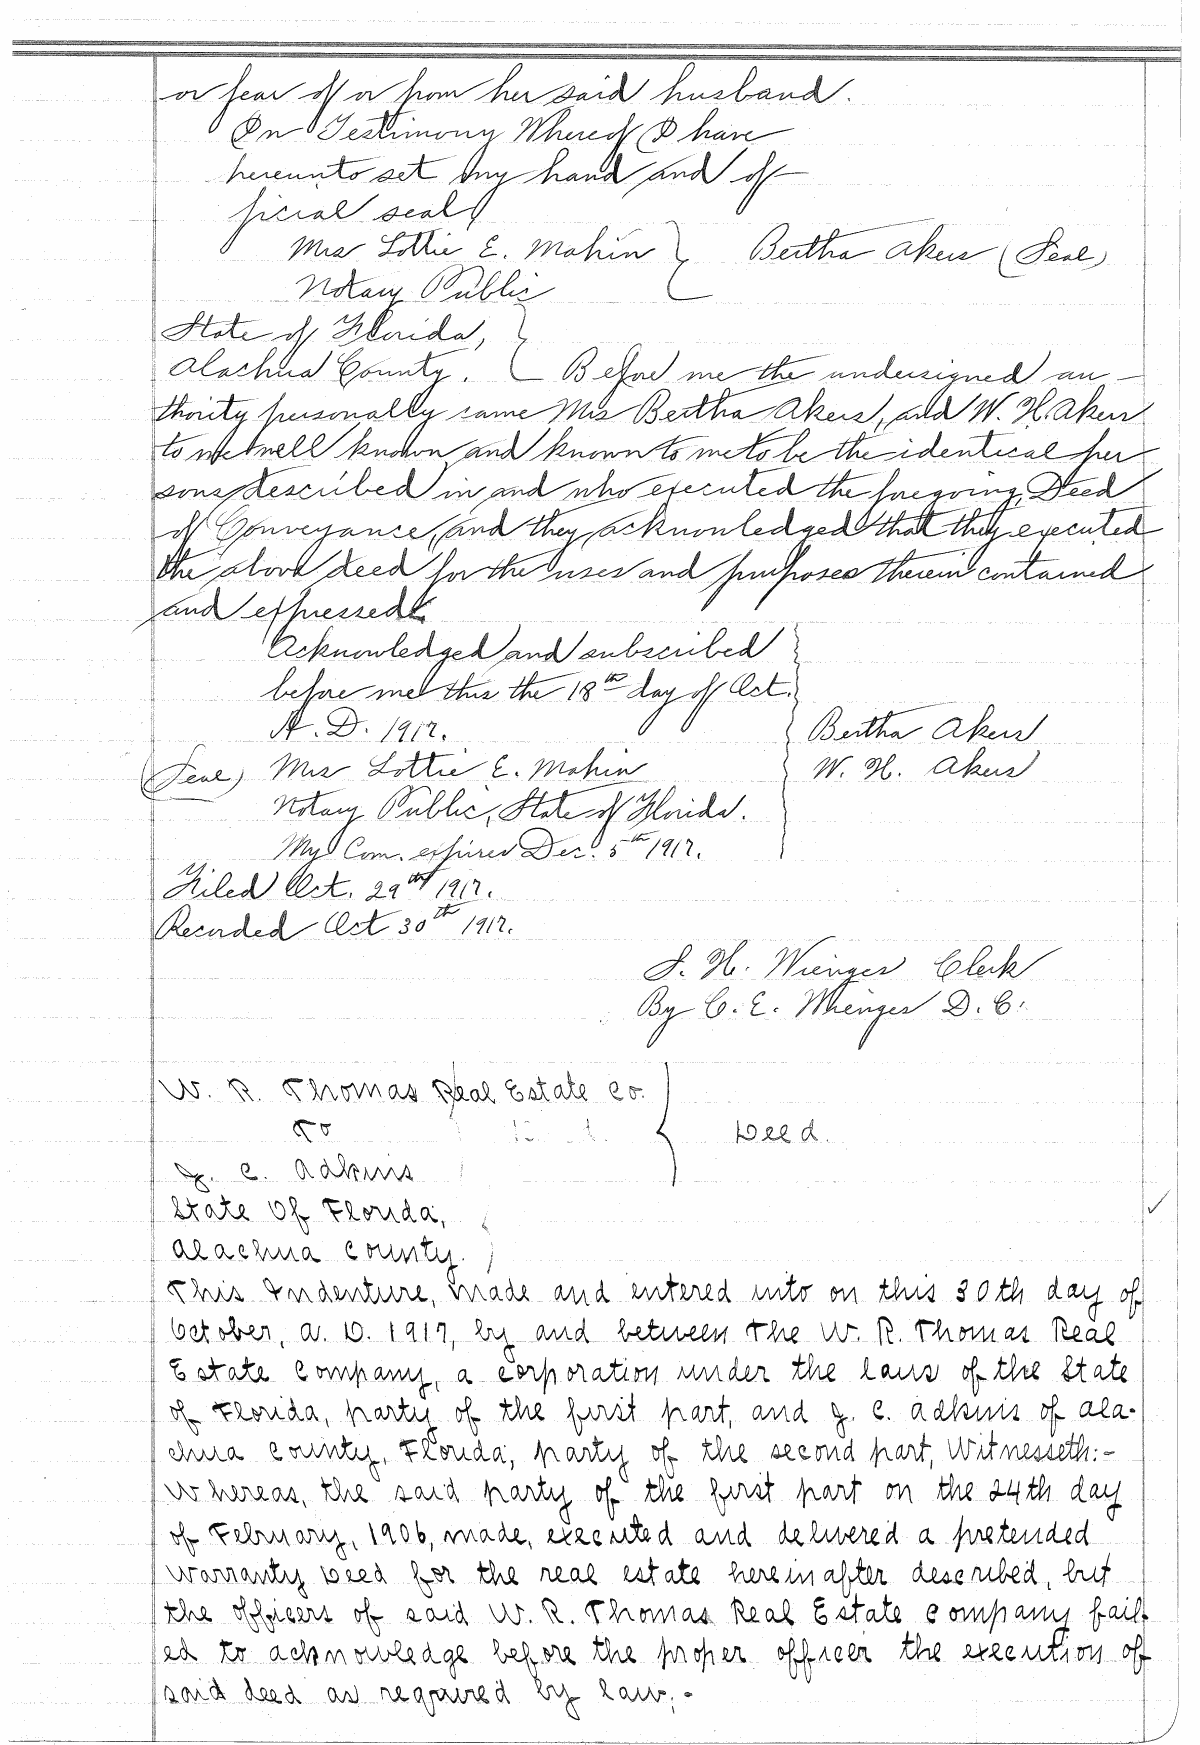 or fear of or from her said husband.
In Testimony Whereof I have
hereunto set my hand and of
ficial seal
Mrs Lottie E. Mahin } Bertha Akers (Seal)
Notary Public
State of Florida, }
Alachua County. Before me the undersigned au-
thority personally came Mrs Bertha Akers, and W. H. Akers
to me well known and known to me to be the identical per
sons described in and who executed the foregoing Deed
of Conveyance, and they acknowledged that they executed
the above deed for the uses and purposes therein contained
and expressed
Acknowledged and subscribed
before me this the 18th day of Oct.
A. D. 1917.
Bertha Akers
(Seal) Mrs Lottie E. Mahin W. H. Akers
Notary Public, State of Florida.
My Com. expires Dec. 5th 1917.
Filed Oct. 29th 1917.
Recorded Oct 30th 1917.
S. H. Wienges Clerk
By C. E. Wienges D. C.
W. R. Thomas Real Estate Co.
To } Deed.
J. C. Adkins
State Of Florida,
Alachua County. }
This Indenture, made and entered into on this 30th day of
October, A. D. 1917, by and between The W. R. Thomas Real
Estate Company, a corporation under the laws of the State
of Florida, party of the first part, and J. C. Adkins of Ala-
chua County, Florida, party of the second part, Witnesseth:-
Whereas, the said party of the first part on the 24th day
of February, 1906, made, executed and delivered a pretended
Warranty Deed for the real estate hereinafter described, but
the officers of said W. R. Thomas Real Estate Company fail-
ed to acknowledge before the proper officer the execution of
said deed as required by law;-